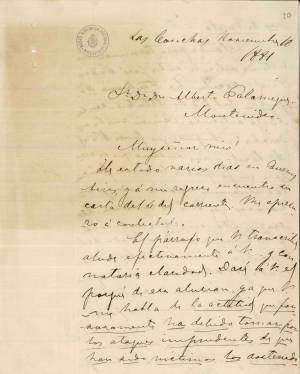 10
Las Conchas Noviembre 10
1881
Sr. Dr. Dn. Alberto Palomeque
Montevideo
Muy señor mío:
He estado varios dias en Buenos
Aires, y á mi regreso encuentro su
carta del 6 del corriente. Me apresu-
ro á contestar.
El párrafo que V. transcribe
alude efectivamente á V. y con
notoria claridad. Daré á V. el
porqué de esa alusion, ya que V.
me habla de la actitud que
ha debido tomar por
los ataques imprudentes de que
han sido víctimas los